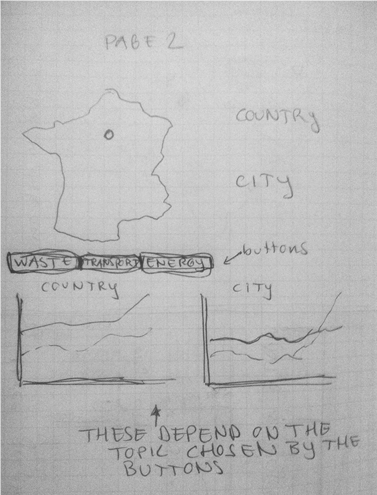 PAGE 2
COUNTRY
CITY
WASTE TRANSPORT ENERGY
buttons
COUNTRY CITY
THESE DEPEND ON THE
TOPIC CHOSEN BY THE
BUTTONS